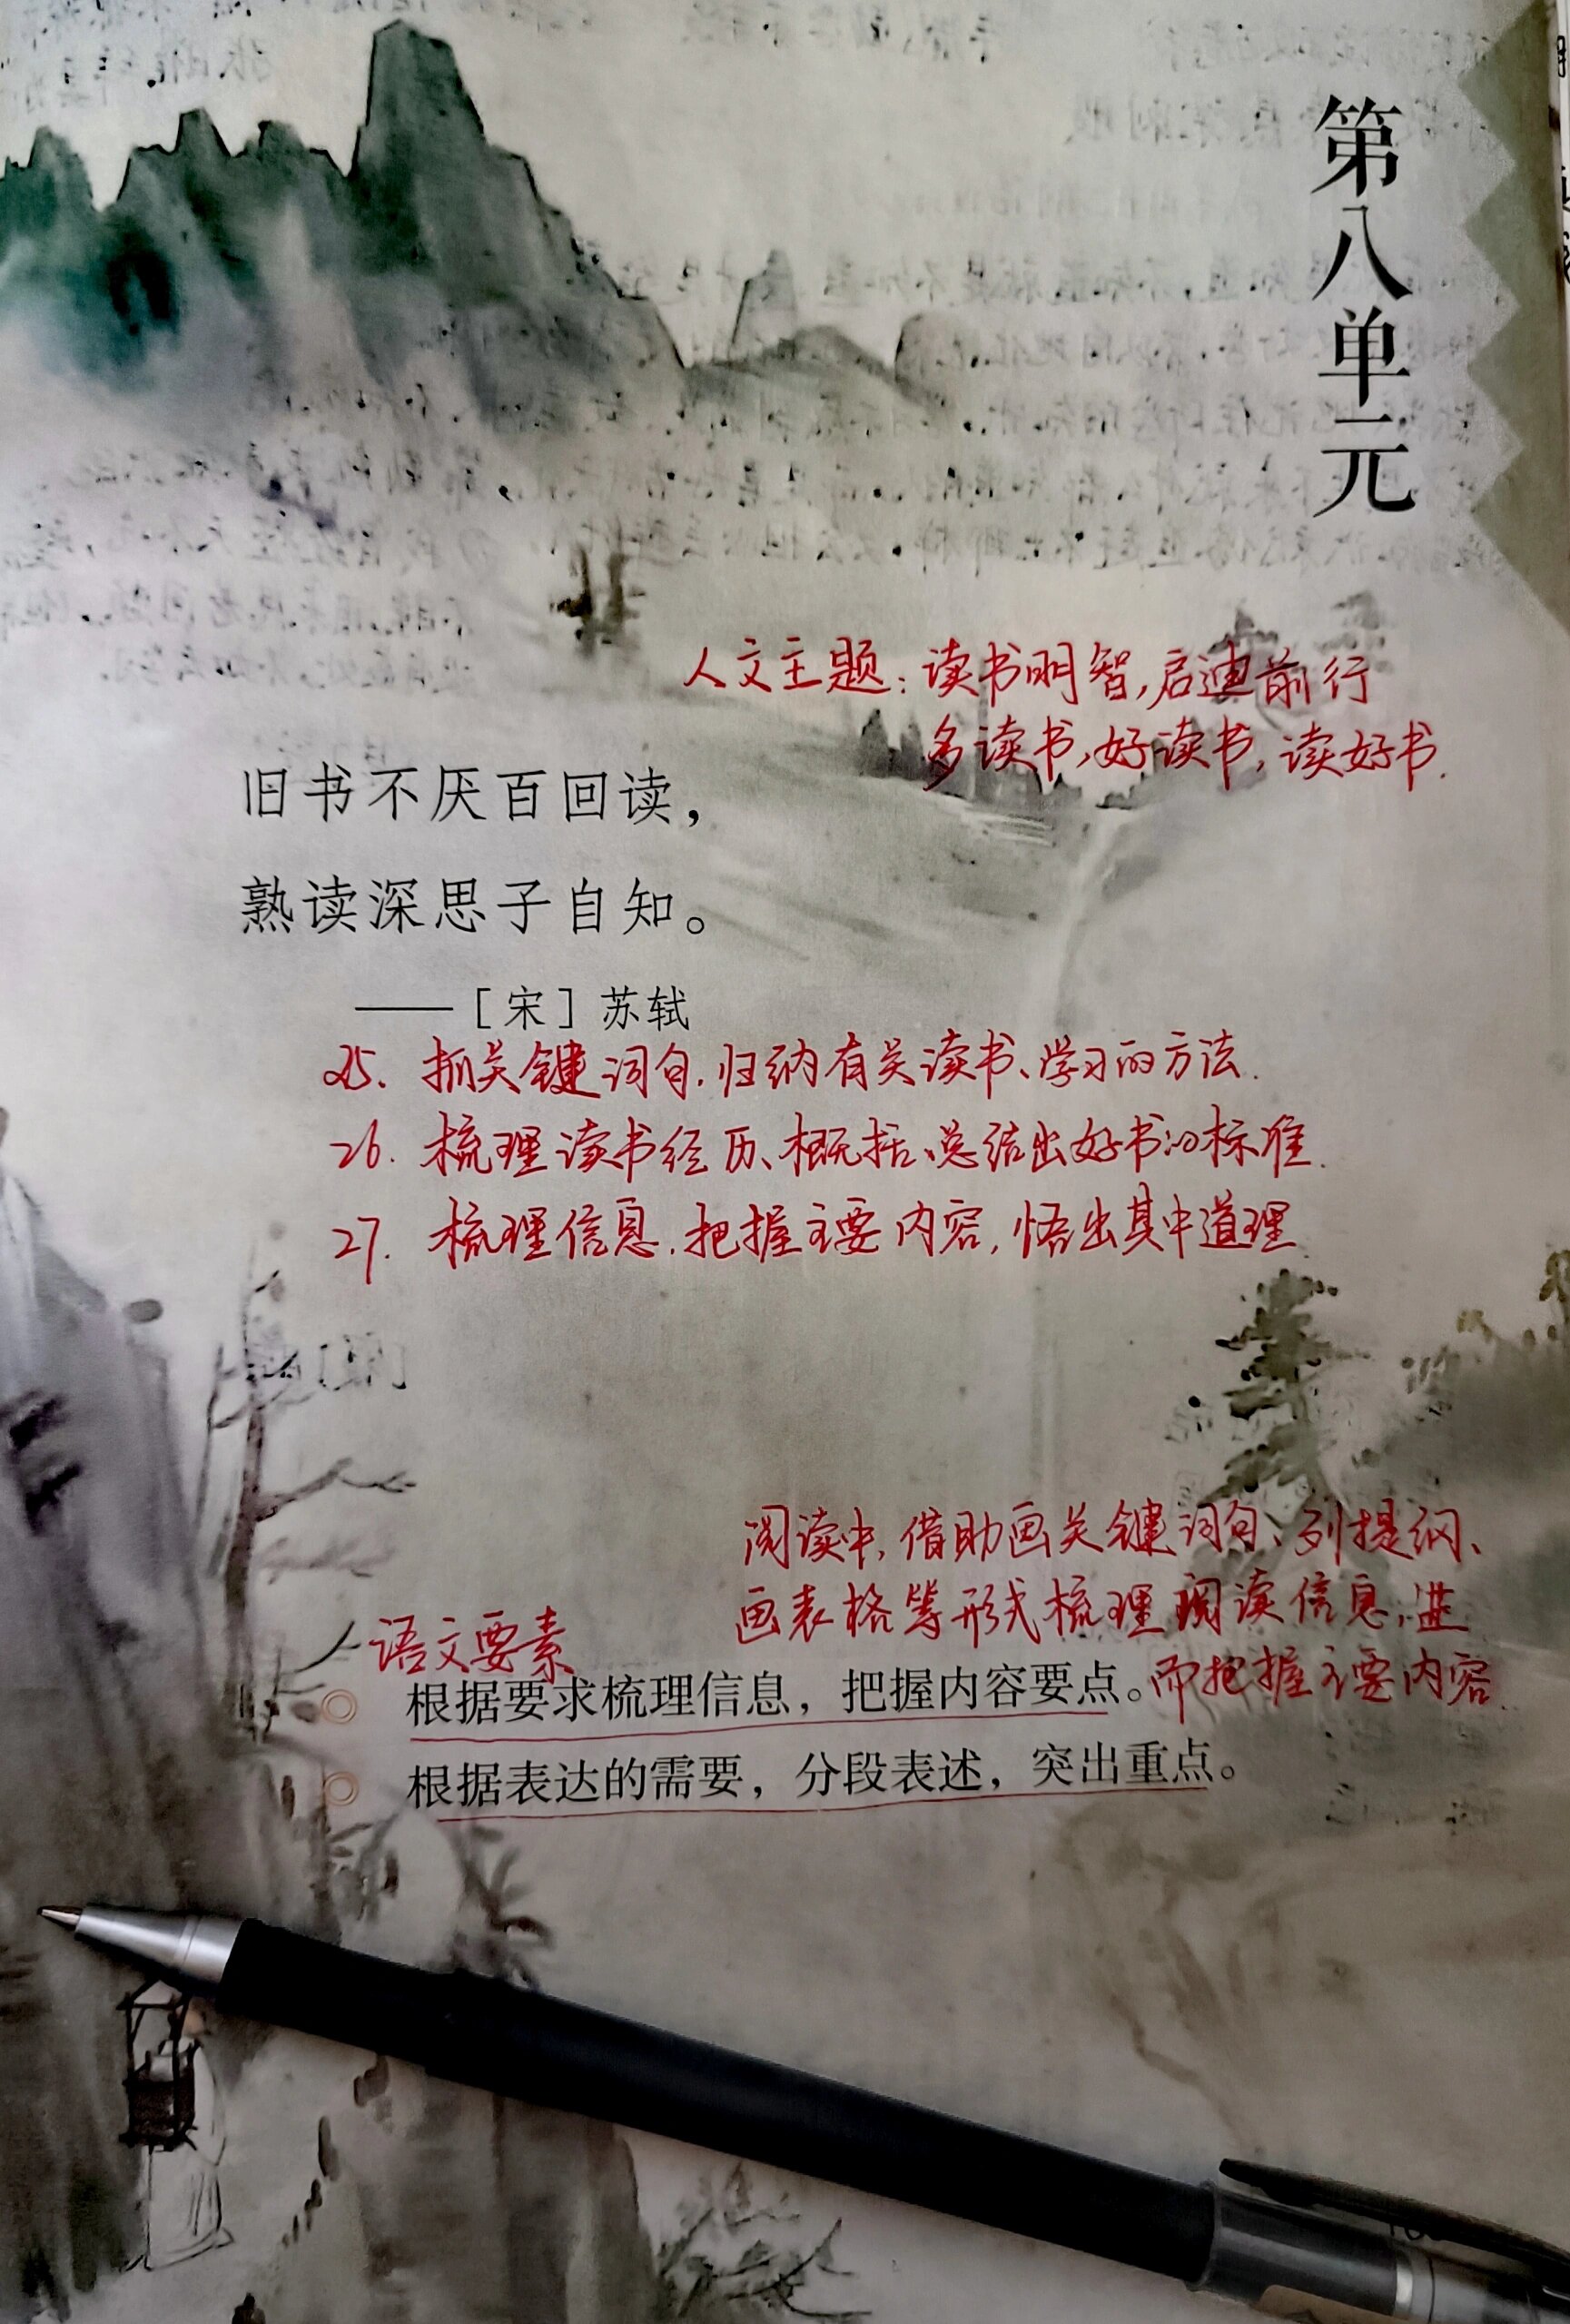 第八单元
人文主题：读书明智，启迪前行
多读书，好读书，读好书.
旧书不厌百回读，
熟读深思子自知。
——［宋］苏轼
25. 抓关键词句，归纳有关读书、学习的方法.
26. 梳理读书经历、概括、总结出好书的标准.
27. 梳理信息，把握主要内容，悟出其中道理.
阅读中，借助画关键词句、列提纲、
画表格等形式梳理阅读信息，进
而把握主要内容.
语文要素
根据要求梳理信息，把握内容要点。
根据表达的需要，分段表述，突出重点。